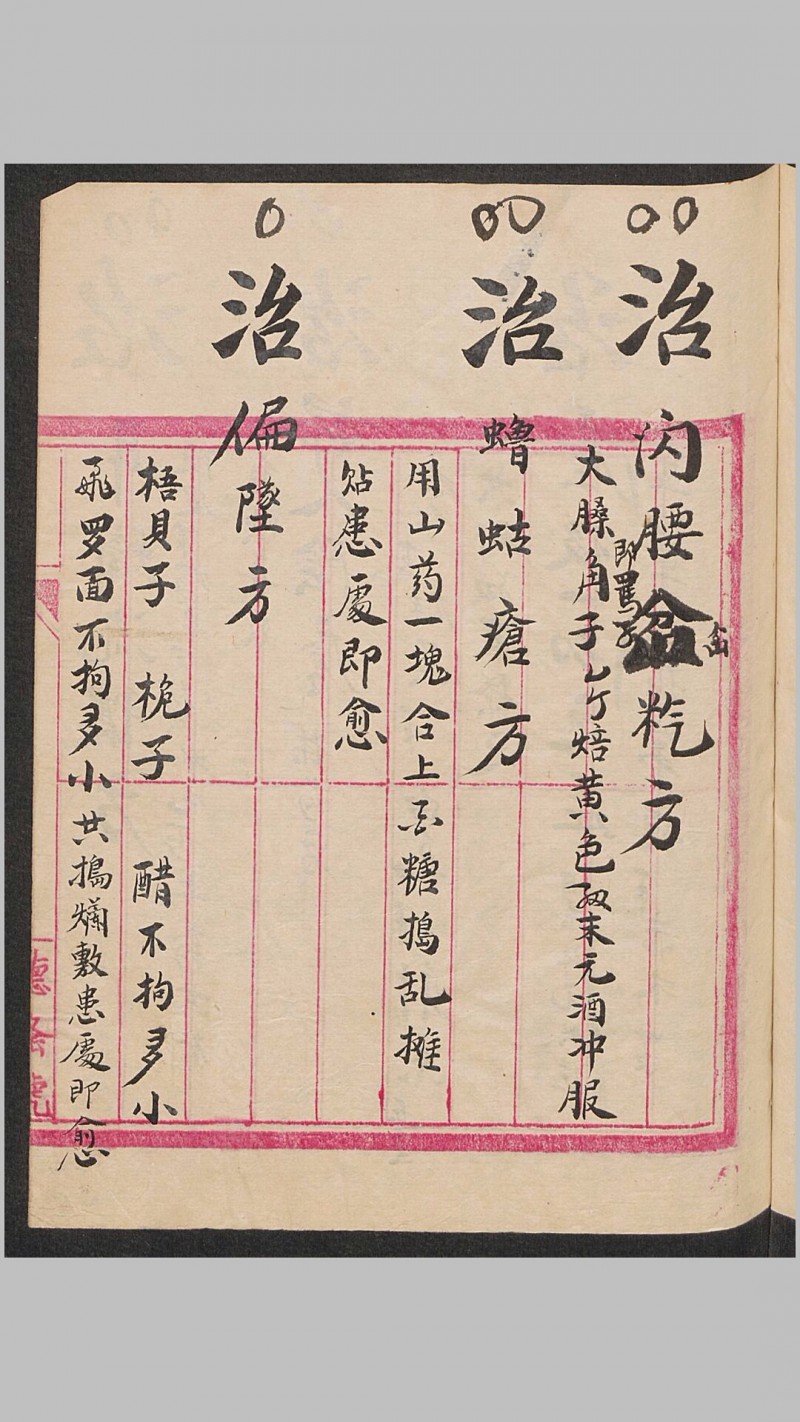 治闪腰岔粃方
岔
大臊角子乙个焙黄色及末元酒冲服
即骂子
治蟮蛄瘡方
用山药一塊合上白糖搗乱摊
贴患處即愈
治偏墜方
梧貝子 栀子 醋不拘多小
飛罗面不拘多小共搗爛敷患處即愈